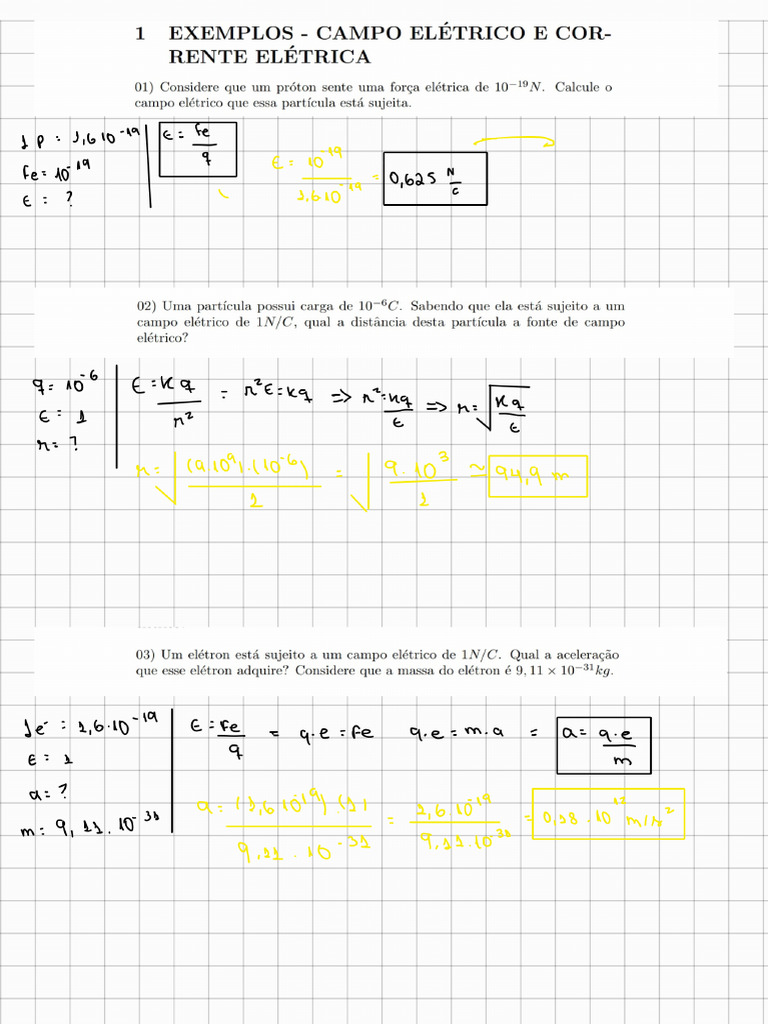 1 EXEMPLOS - CAMPO ELÉTRICO E COR-
RENTE ELÉTRICA
01) Considere que um próton sente uma força elétrica de 10⁻¹⁹N. Calcule o
campo elétrico que essa partícula está sujeita.
1 p : 1,6 10⁻¹⁹
Fe = 10⁻¹⁹
E : ?
E = Fe/q
E = 10⁻¹⁹/1,6 10⁻¹⁹ = 0,625 N/C
02) Uma partícula possui carga de 10⁻⁶C. Sabendo que ela está sujeito a um
campo elétrico de 1N/C, qual a distância desta partícula a fonte de campo
elétrico?
q = 10⁻⁶
E = 1
r = ?
E = K q/r² = r²E = kq => r² = kq/E => r = √(K q/E)
r = √((9 10⁹).(10⁻⁶)/1) = √(9 . 10³/1) ≈ 94,9 m
03) Um elétron está sujeito a um campo elétrico de 1N/C. Qual a aceleração
que esse elétron adquire? Considere que a massa do elétron é 9,11 × 10⁻³¹kg.
1e⁻ : 1,6.10⁻¹⁹
E = 1
a = ?
m = 9,11.10⁻³¹
E = Fe/q = q.e = Fe q.e = m.a = a = q.e/m
a = (1,6 10⁻¹⁹).(1)/9,11 . 10⁻³¹ = 1,6.10⁻¹⁹/9,11.10⁻³¹ = 0,18 . 10¹² m/s²